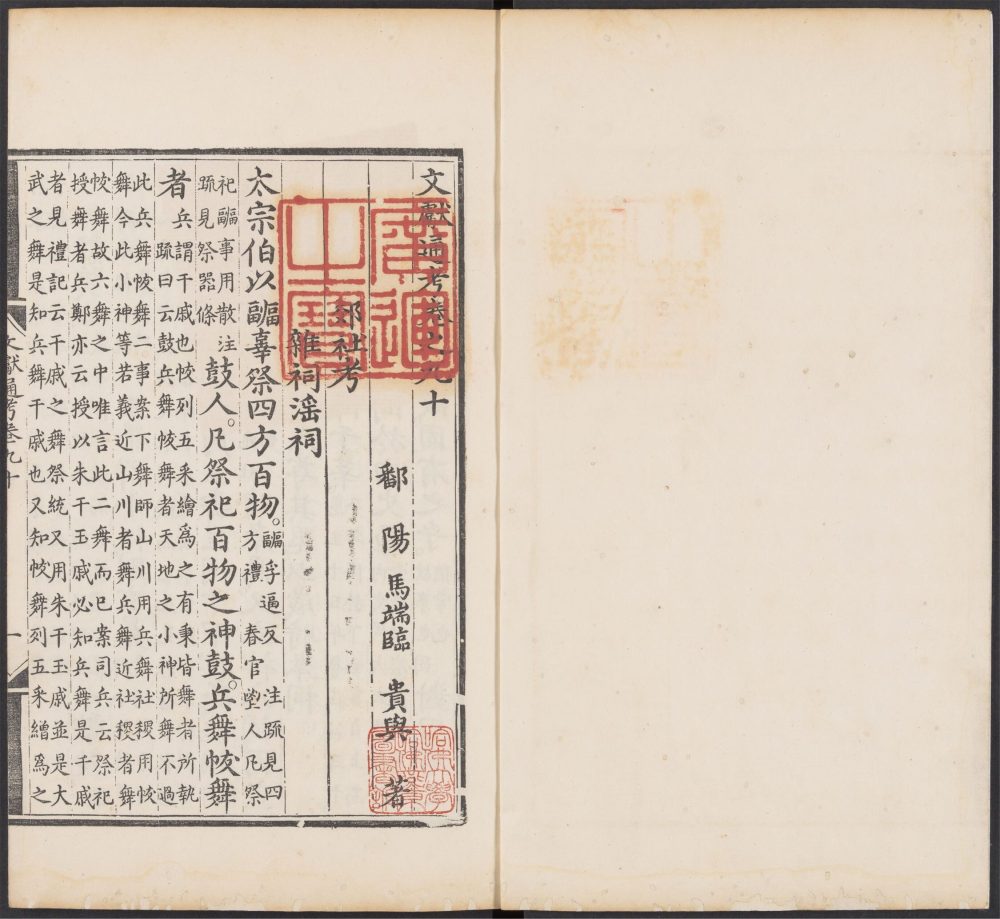 文獻通考卷之九十
鄱陽馬端臨貴與著
郊社考
雜祠滛祠
太宗伯以疈辜祭四方百物。疈孚逼反 注疏見四
方禮春官 鬯人凡祭
祀疈事用散注
疏見祭器條 鼓人。凡祭祀百物之神鼓。兵舞帗舞
者 兵謂干戚也帗列五采繒爲之有秉皆舞者所執
疏曰云鼓兵舞帗舞者天地之小神所舞不過
此兵舞帗舞二事案下舞師山川用兵舞社稷用帗
舞今此小神等若義近山川者舞兵舞近社稷者舞
帗舞故六舞之中唯言此二舞而已案司兵云祭祀
授舞者兵鄭亦云授以朱干玉戚必知兵舞是干戚
者見禮記云干戚之舞祭統又用朱干玉戚並是大
武之舞是知兵舞干戚也又知帗舞列五采繒爲之
文獻通考卷九十 一
廣運之寶